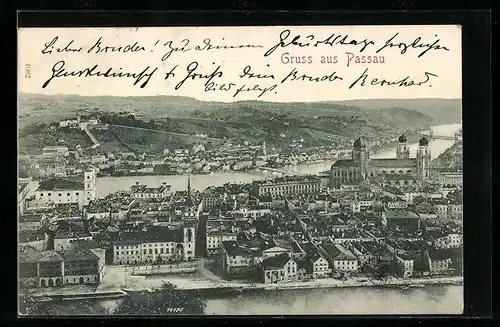 Lieber Bruder! Zu deinem Geburtstage herzlichen
Glückwunsch & Gruß dein Bruder Bernhard.
Bild folgt.
Gruss aus Passau